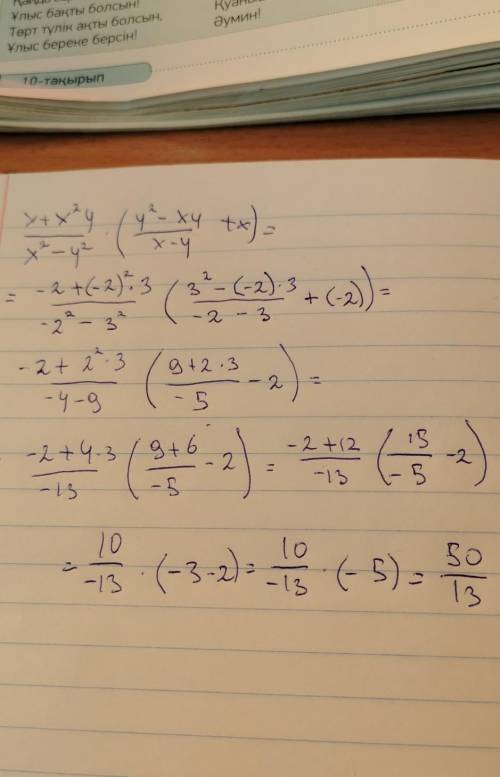 Ұлыс бақты болсын!
Төрт түлік ақты болсын,
Ұлыс береке берсін!
Әумин!
10-тақырып
x+x²y/x²-y² · (y²-xy/x-y +x) =
= -2+(-2)²·3/-2²-3² (3²-(-2)·3/-2-3 +(-2)) =
-2+2²·3/-4-9 (9+2·3/-5 -2) =
-2+4·3/-13 (9+6/-5 -2) = -2+12/-13 (15/-5 -2)
= 10/-13 · (-3-2) = 10/-13 · (-5) = 50/13